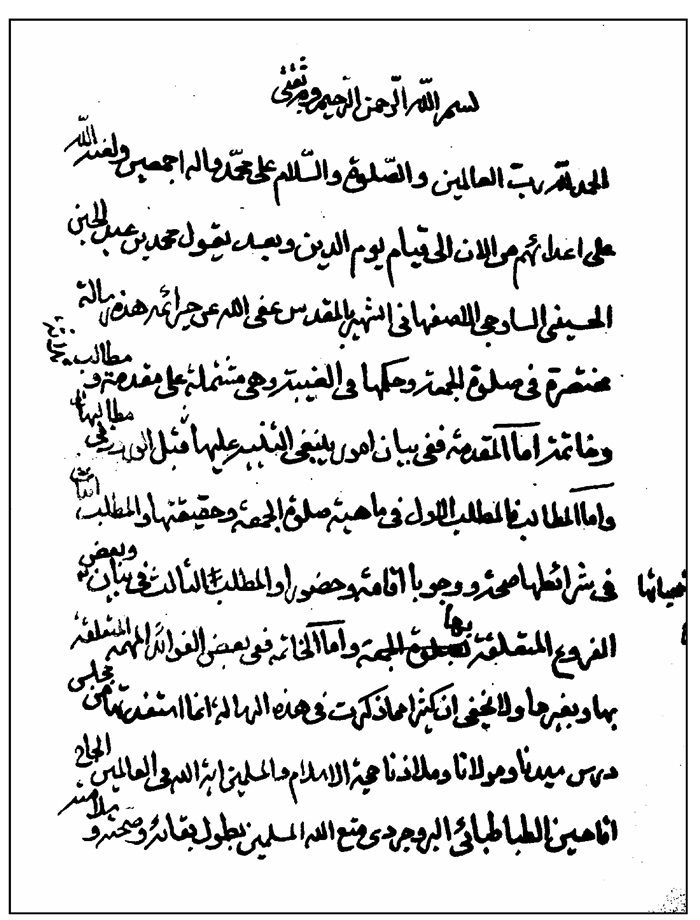 بسم الله الرحمن الرحيم وبه ثقتي
الحمد لله رب العالمين والصلوة والسلام على محمد واله اجمعين ولعنة الله
على اعدائهم من الان الى قيام يوم الدين وبعد يقول محمد بن عبد الحسين
الحسيني الساوجي الاصفهاني الشهير بالمقدس عفى الله عن جرائمه هذه رسالة
مختصرة في صلوة الجمعة وحكمها في الغيبة وهي مشتملة على مقدمة و مطالب
وخاتمة اما المقدمة ففي بيان امور ينبغي التنبيه عليها قبل في مطالبها
واما المطالب فالمطلب الاول في ماهية صلوة الجمعة وحقيقتها والمطلب الثاني
في شرائطها صحة ووجوبا اقامة وحضورا والمطلب الثالث في بيان وبعض
الفروع المتعلقة بها واما الخاتمة ففي بعض الفوائد المهمة المتعلقة
بها وبغيرها ولا يخفى ان كثيرا مما ذكرت في هذه الرسالة انما استفدته من مجلس
درس سيدنا ومولانا وملاذنا حجة الاسلام والمسلمين اية الله في العالمين الحاج
اقا حسين الطباطبائي البروجردي متع الله المسلمين بطول بقائه وصحته و سلامته